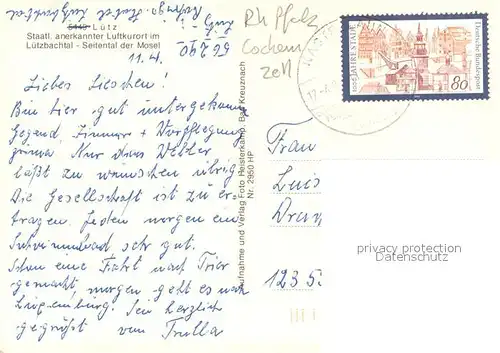 5449 Lütz
Staatl. anerkannter Luftkurort im
Lützbachtal - Seitental der Mosel
11.4.
56290
Lütz
Rh Pfalz
Cochem
Zell
Liebes Lieschen!
Bin hier gut untergekommen
Gegend, Zimmer + Verpflegung
prima. Nur das Wetter
läßt zu wünschen übrig
Die Gesellschaft ist zu er-
tragen. Jeden morgen ein
Schwimmbad sehr gut.
Schon eine Fahrt nach Trier
gemacht, morgen geht es nach
Luxemburg. Sei herzlich
gegrüßt von Trulla
Aufnahme und Verlag Foto Heisterkamp, Bad Kreuznach
Nr. 2950 HP
JAHRE STADT
Deutsche Bundespost
80
Frau
Luis
1235
privacy protection
Datenschutz